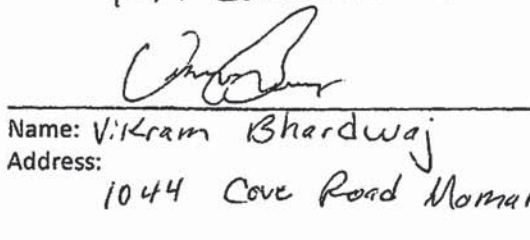 Name: Vikram Bhardwaj
Address:
1044 Cove Road